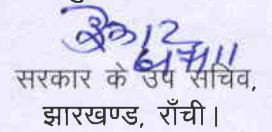 सरकार के उप सचिव,
झारखण्ड, राँची।